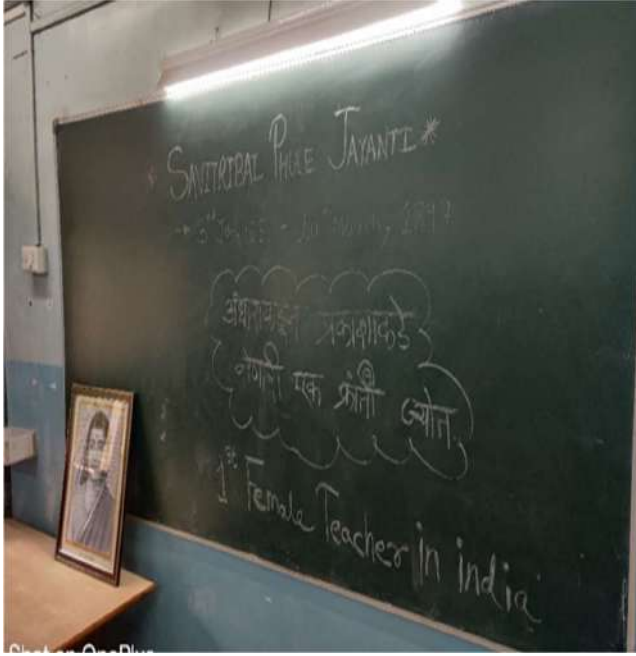 * SAVITRIBAI PHULE JAYANTI *
→ 3rd - 10th March, 1897
अंधाराकडून प्रकाशाकडे
नेणारी एक क्रांती ज्योत.
1st Female Teacher in india
Shot on OnePlus